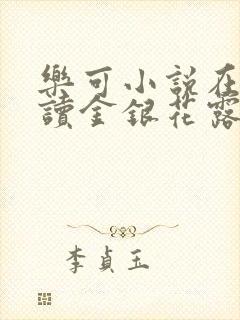 樂可小說在
讀金銀花露
李貞玉